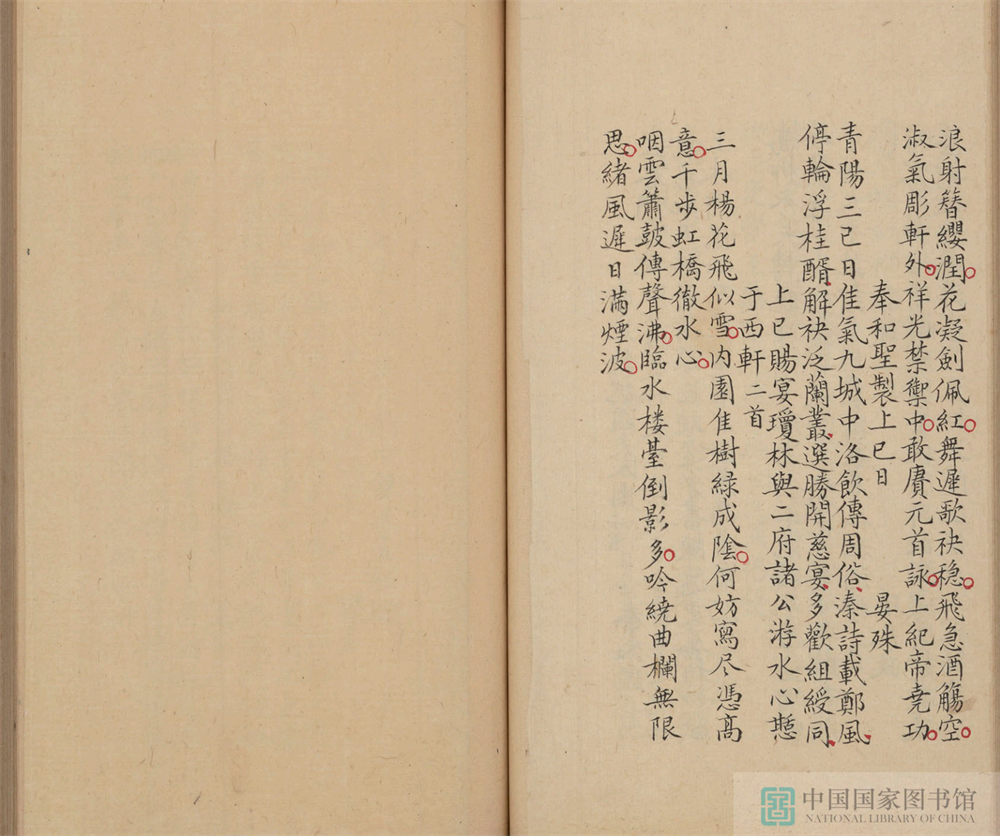 浪射簪纓潤花凝劍佩紅舞遲歌袂穏飛急酒觴空
淑氣彫軒外祥光禁籞中敢賡元首詠上紀帝堯功
奉和聖製上巳日 晏殊
青陽三巳日佳氣九城中洛飲傳周俗溱詩載鄭風
停輪浮桂醑解袂泛蘭叢選勝開慈宴多歡組綬同
上巳賜宴瓊林與二府諸公游水心憇
于西軒二首
三月楊花飛似雪内園佳樹緑成陰何妨寫尽憑高
意千步虹橋徹水心
咽雲簫鼓傳聲沸臨水楼䑓倒影多吟繞曲欄無限
思緒風遲日滿煙波
中国国家图书馆
NATIONAL LIBRARY OF CHINA